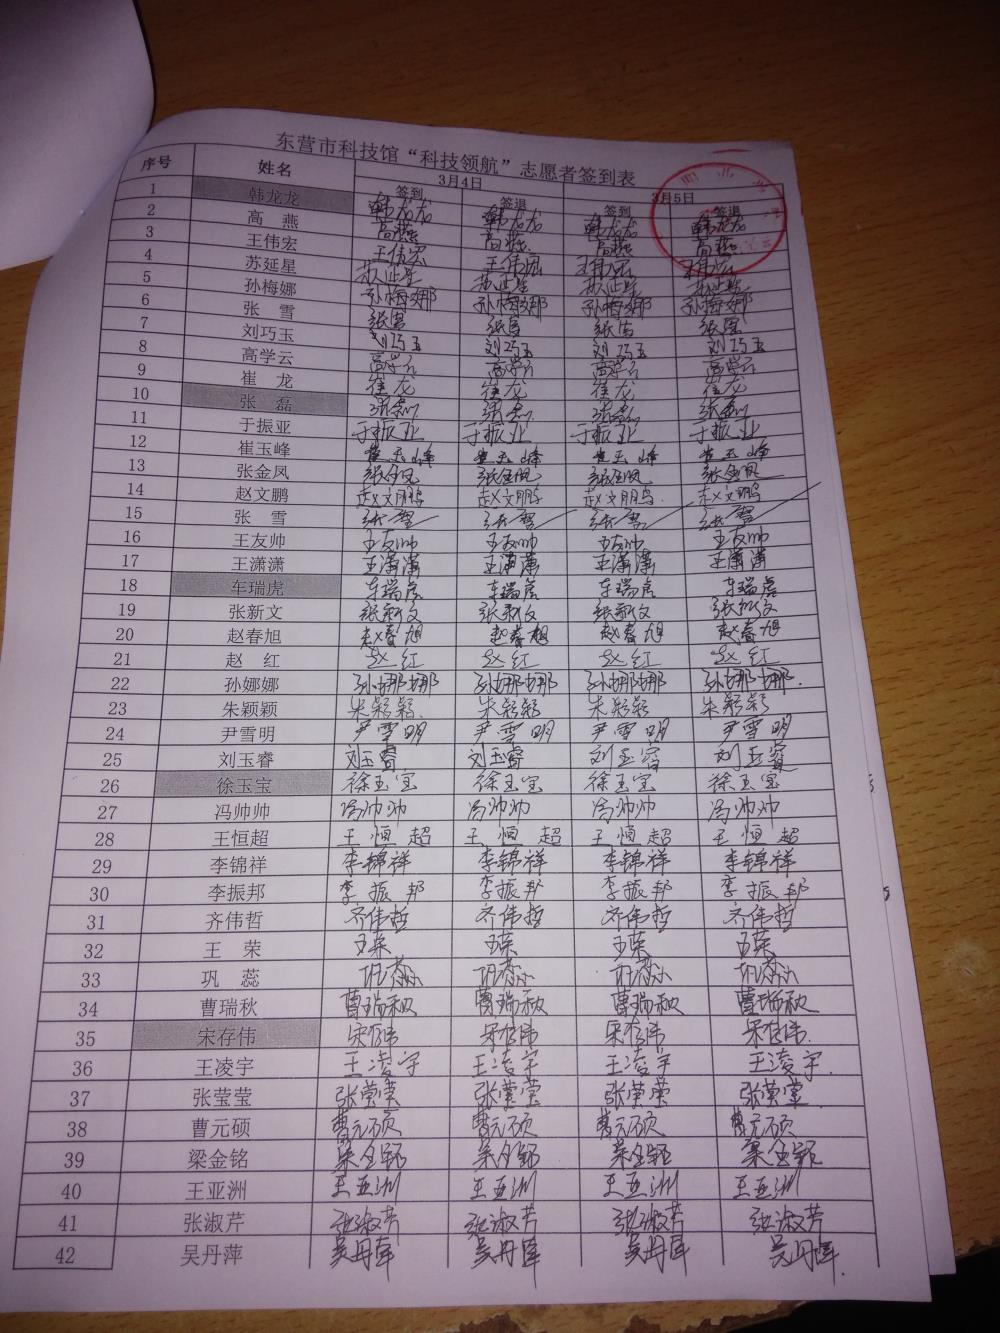 东营市科技馆“科技领航”志愿者签到表
序号 姓名 3月4日 3月5日
签到 签退 签到 签退
1 韩龙龙 韩龙龙 韩龙龙 韩龙龙 韩龙龙
2 高燕 高燕 高燕 高燕 高燕
3 王伟宏 王伟宏 王伟宏 王伟宏 王伟宏
4 苏延星 苏延星 苏延星 苏延星 苏延星
5 孙梅娜 孙梅娜 孙梅娜 孙梅娜 孙梅娜
6 张雪 张雪 张雪 张雪 张雪
7 刘巧玉 刘巧玉 刘巧玉 刘巧玉 刘巧玉
8 高学云 高学云 高学云 高学云 高学云
9 崔龙 崔龙 崔龙 崔龙 崔龙
10 张磊 张磊 张磊 张磊 张磊
11 于振亚 于振亚 于振业 于振业 于振业
12 崔玉峰 崔玉峰 崔玉峰 崔玉峰 崔玉峰
13 张金凤 张金凤 张金凤 张金凤 张金凤
14 赵文鹏 赵文鹏 赵文鹏 赵文鹏 赵文鹏
15 张雪 张雪 张雪 张雪 张雪
16 王友帅 王友帅 王友帅 王友帅 王友帅
17 王潇潇 王潇潇 王潇潇 王潇潇 王潇潇
18 车瑞虎 车瑞虎 车瑞虎 车瑞虎 车瑞虎
19 张新文 张新文 张新文 张新文 张新文
20 赵春旭 赵春旭 赵春旭 赵春旭 赵春旭
21 赵红 赵红 赵红 赵红 赵红
22 孙娜娜 孙娜娜 孙娜娜 孙娜娜 孙娜娜
23 朱颖颖 朱颖颖 朱颖颖 朱颖颖 朱颖颖
24 尹雪明 尹雪明 尹雪明 尹雪明 尹雪明
25 刘玉睿 刘玉睿 刘玉睿 刘玉睿 刘玉睿
26 徐玉宝 徐玉宝 徐玉宝 徐玉宝 徐玉宝
27 冯帅帅 冯帅帅 冯帅帅 冯帅帅 冯帅帅
28 王恒超 王恒超 王恒超 王恒超 王恒超
29 李锦祥 李锦祥 李锦祥 李锦祥 李锦祥
30 李振邦 李振邦 李振邦 李振邦 李振邦
31 齐伟哲 齐伟哲 齐伟哲 齐伟哲 齐伟哲
32 王荣 王荣 王荣 王荣 王荣
33 巩蕊 巩蕊 巩蕊 巩蕊 巩蕊
34 曹瑞秋 曹瑞秋 曹瑞秋 曹瑞秋 曹瑞秋
35 宋存伟 宋存伟 宋存伟 宋存伟 宋存伟
36 王凌宇 王凌宇 王凌宇 王凌宇 王凌宇
37 张莹莹 张莹莹 张莹莹 张莹莹 张莹莹
38 曹元硕 曹元硕 曹元硕 曹元硕 曹元硕
39 梁金铭 梁金铭 梁金铭 梁金铭 梁金铭
40 王亚洲 王亚洲 王亚洲 王亚洲 王亚洲
41 张淑芹 张淑芹 张淑芹 张淑芹 张淑芹
42 吴丹萍 吴丹萍 吴丹萍 吴丹萍 吴丹萍